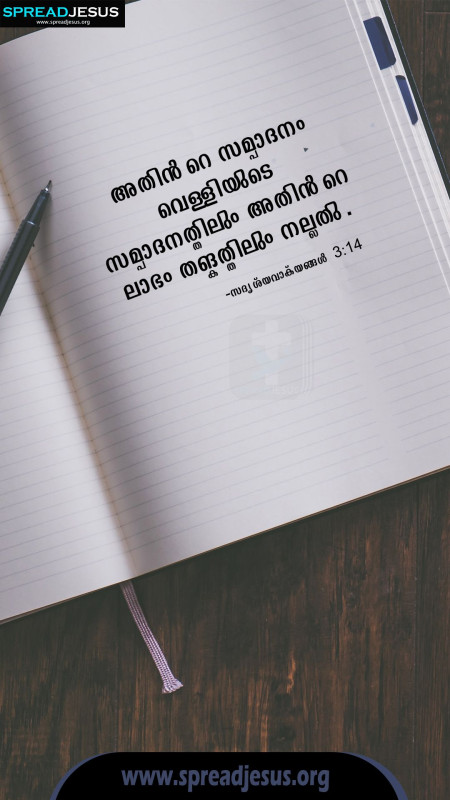 SPREADJESUS
www.spreadjesus.org
അതിൻ റെ സമ്പാദനം
വെള്ളിയുടെ
സമ്പാദനത്തിലും അതിൻ റെ
ലാഭം തങ്കത്തിലും നല്ലതു .
-സദൃശ്യവാക്യങ്ങൾ 3:14
www.spreadjesus.org